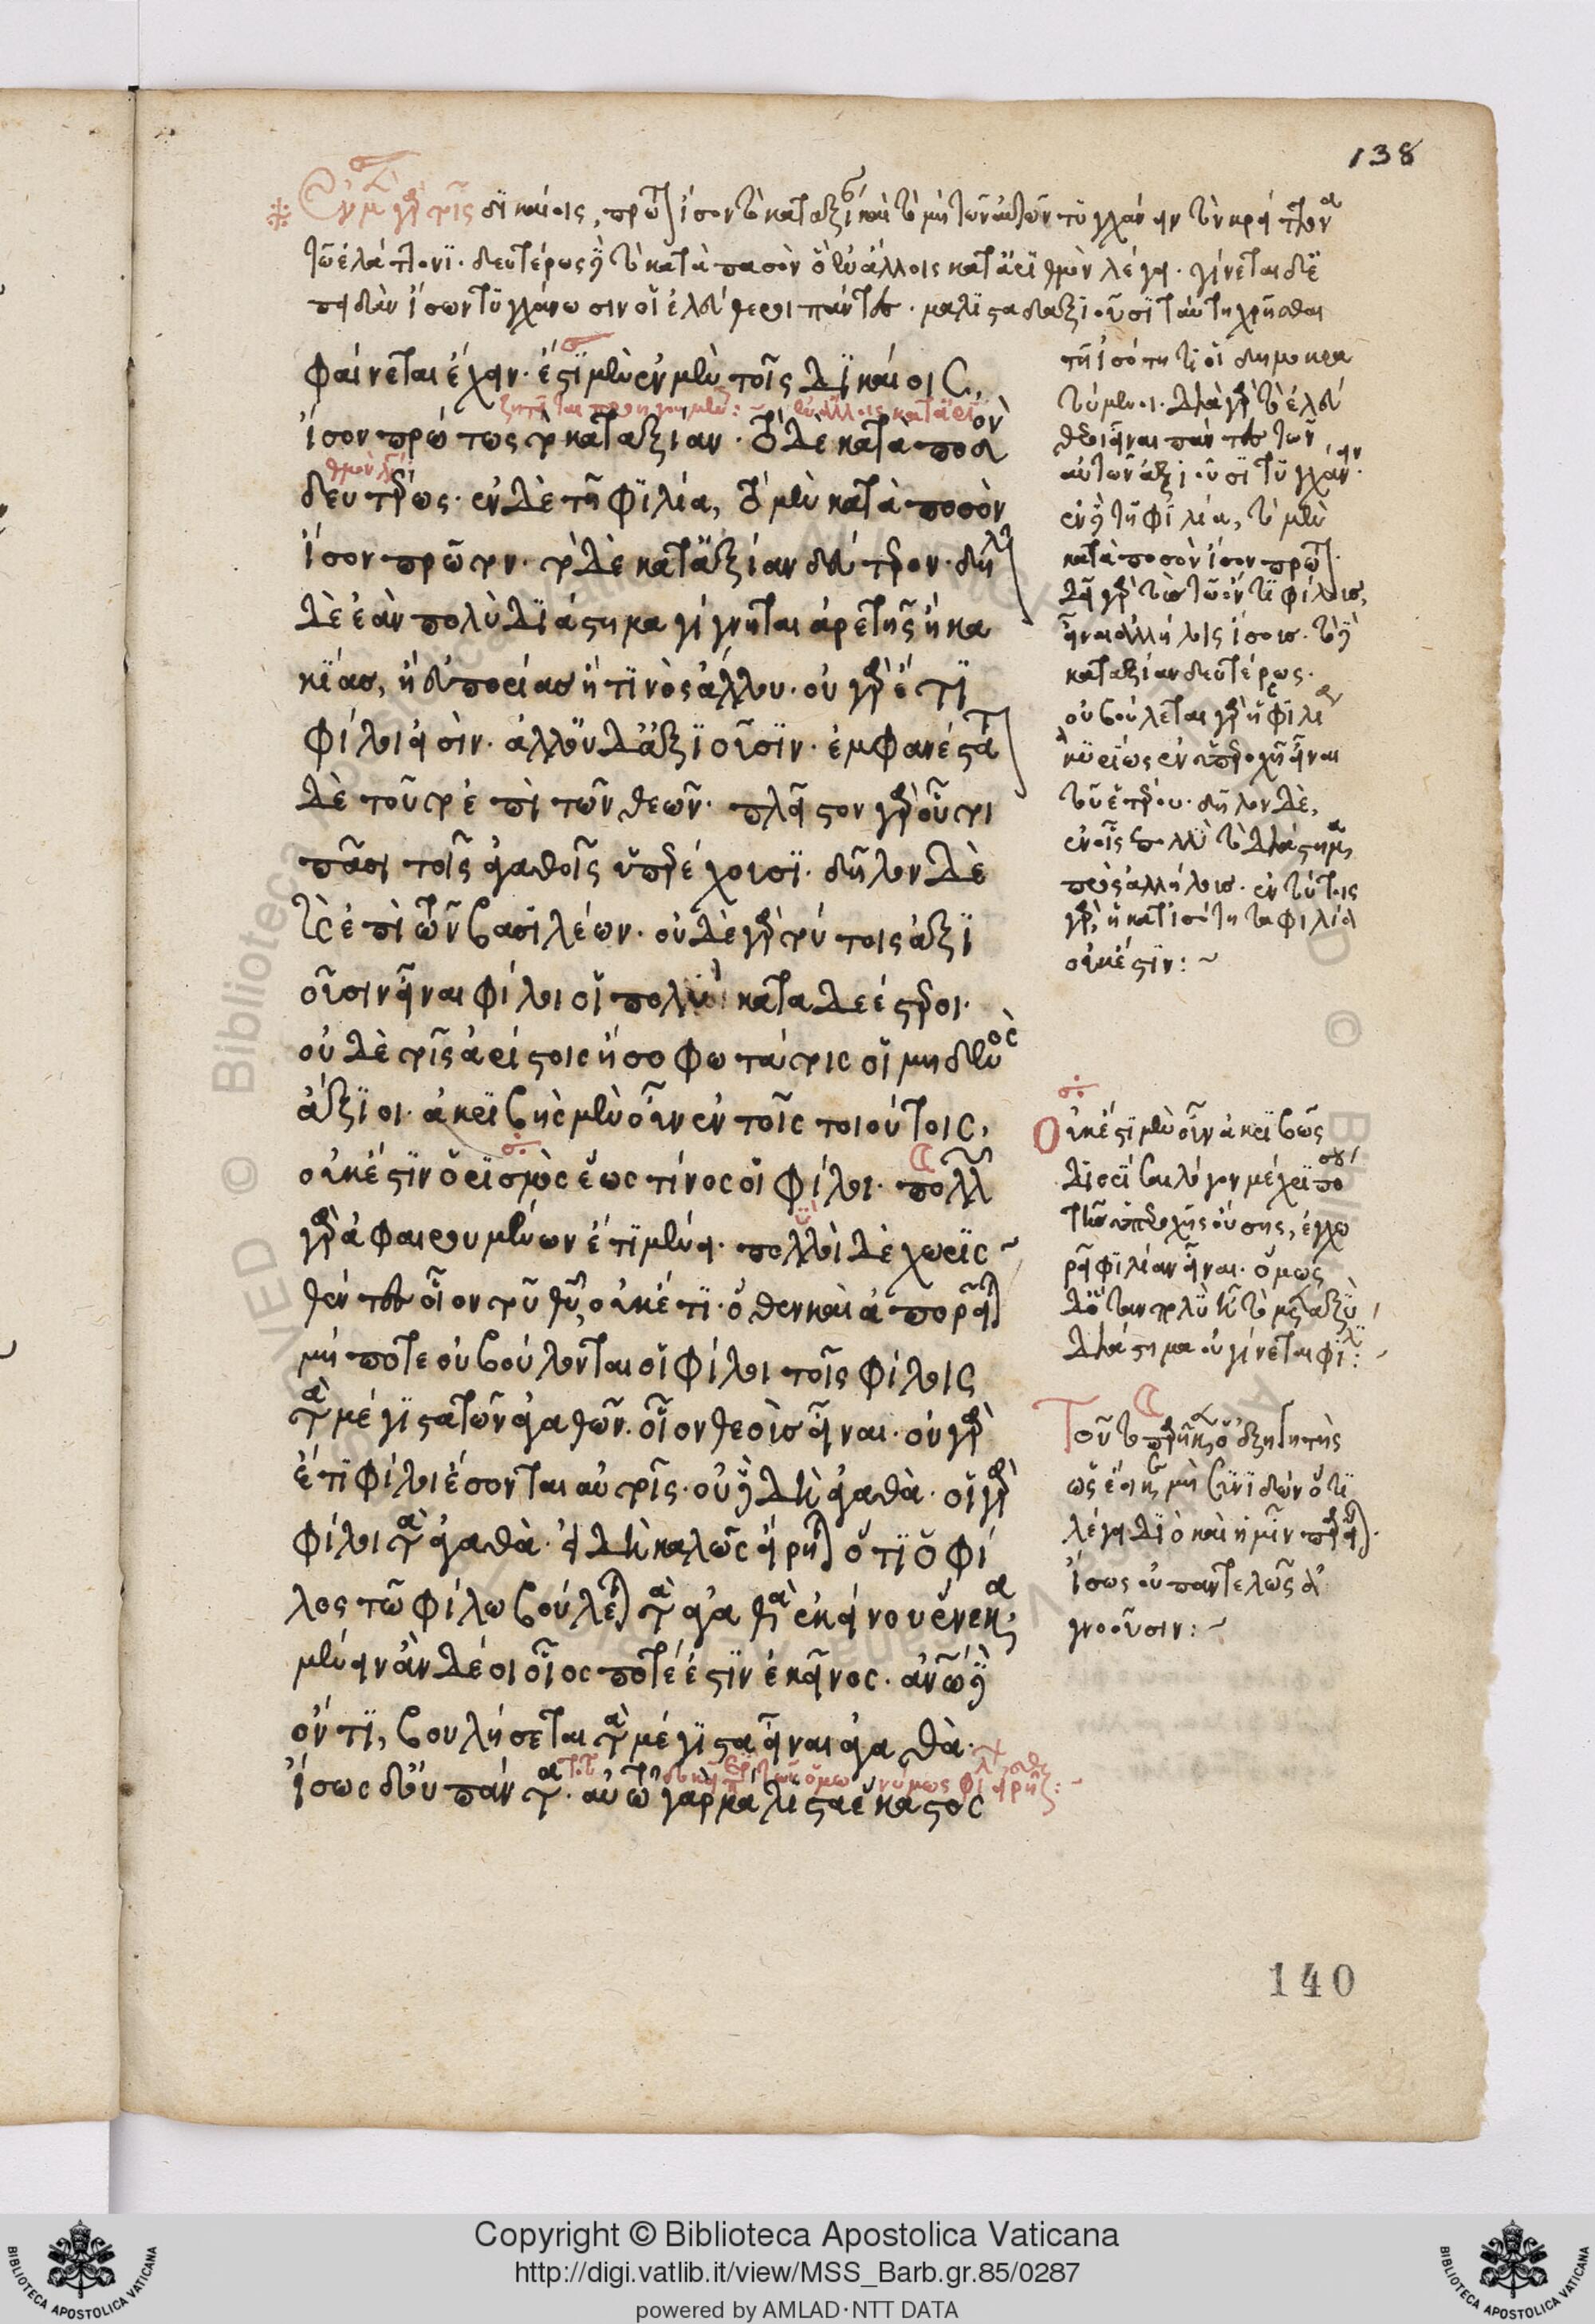 Ἐν μὲν γὰρ τοῖς δικαίοις, πρῶτον ἴσον τὸ κατ' ἀξίαν καὶ τὸ μὴ τῶν αὐτῶν τυγχάνειν τὸν κρείττονα
τῷ ἐλάττονι· δευτέρως δὲ τὸ κατὰ ποσὸν ὃ ἐν ἄλλοις κατ' ἀριθμὸν λέγει· γίνεται δὲ
ἐπειδὰν ἴσων τυγχάνωσιν οἱ ἐλεύθεροι πάντες· μάλιστα δ' ἀξιοῦσι ταύτῃ χρῆσθαι
τῇ ἰσότητι οἱ δημοκρα
τούμενοι· διὰ γὰρ τὸ ἐλεύ
θεροι εἶναι πάντες τῶν
αὐτῶν ἀξιοῦσι τυγχάνειν·
ἐν δὲ τῇ φιλία, τὸ μὲν
κατὰ ποσὸν ἴσον πρῶτον·
δεῖ γὰρ τοὺς τῷ ὄντι φίλους,
εἶναι ἀλλήλοις ἴσους· τὸ δὲ
κατ' ἀξίαν δευτέρως·
οὐ βούλεται γὰρ ἡ φιλία
κυρίως ἐν ὑπεροχῇ εἶναι
τοῦ ἑτέρου· δῆλον δὲ,
ἐν οἷς πολὺ τὸ διάστημα
πρὸς ἀλλήλους· ἐν τούτοις
γὰρ, ἡ κατ' ἰσότητα φιλία
οὐκ ἔστιν:~
φαίνεται ἔχειν· ἔστι μὲν ἐν μὲν τοῖς δικαίοις,
ἴσον πρώτως τὸ κατ' ἀξίαν· τὸ δὲ κατὰ ποσὸν
δευτέρως· ἐν δὲ τῇ φιλία, τὸ μὲν κατὰ ποσὸν
ἴσον πρῶτον· τὸ δὲ κατ' ἀξίαν δεύτερον· δῆλον
δὲ ἐὰν πολὺ διάστημα γίγνηται ἀρετῆς ἢ κα
κίας, ἢ εὐπορίας ἤ τινὸς ἄλλου· οὐ γὰρ ἔτι
φίλοι εἰσὶν· ἀλλ' οὐδ' ἀξιοῦσιν· ἐμφανέστατον
δὲ τοῦτο ἐπὶ τῶν θεῶν· πλεῖστον γὰρ οὗτοι
πᾶσι τοῖς ἀγαθοῖς ὑπερέχουσι· δῆλον δὲ
καὶ ἐπὶ τῶν βασιλέων· οὐδὲ γὰρ τούτοις ἀξι
οῦσιν εἶναι φίλοι οἱ πολὺ καταδεέστεροι·
οὐδὲ τοῖς ἀρίστοις ἢ σοφωτάτοις οἱ μηδενὸς
ἄξιοι· ἀκριβὴς μὲν οὖν ἐν τοῖς τοιούτοις,
οὐκ ἔστιν ὁρισμὸς ἕως τίνος οἱ φίλοι· πολλῶν
γὰρ ἀφαιρουμένων ἔτι μένει· πολλοὶ δὲ χωρισ
θέντος οἷον τοῦ θεοῦ, οὐκέτι· ὅθεν καὶ ἀπορεῖται
μή ποτε οὐ βούλονται οἱ φίλοι τοῖς φίλοις
τὰ μέγιστα τῶν ἀγαθῶν· οἷον θεοὺς εἶναι· οὐ γὰρ
ἔτι φίλοι ἔσονται αὐτοῖς· οὐδὲ δὴ ἀγαθὰ· οἱ γὰρ
φίλοι τὰ ἀγαθὰ· εἰ δὴ καλῶς εἴρηται ὅτι ὁ φί
λος τῷ φίλῳ βούλεται τὰ ἀγαθὰ ἐκείνου ἕνεκα·
μένειν ἂν δέοι οἷος ποτέ ἐστιν ἐκεῖνος· ἀνθρώπῳ δὲ
ὄντι, βουλήσεται τὰ μέγιστα εἶναι ἀγαθὰ·
ἴσως δ' οὐ πάντα· αὑτῷ γὰρ μάλιστα ἕκαστος
Οὐκ ἔστι μὲν οὖν ἀκριβῶς
διορίσαι λέγοντα μέχρι πόσου
τῆς ὑπεροχῆς οὔσης, ἐγχω
ρεῖ φιλίαν εἶναι· ὅμως
δ' ὅταν πολὺ ᾖ τὸ μεταξὺ
διάστημα οὐ γίνεται φιλία:~
λέγει διὸ καὶ ἡμῖν
ἴσως οὐ παντελῶς ἀ
γνοοῦσιν:~
138
140
Copyright © Biblioteca Apostolica Vaticana
http://digi.vatlib.it/view/MSS_Barb.gr.85/0287
powered by AMLAD·NTT DATA
BIBLIOTECA APOSTOLICA VATICANA
BIBLIOTECA APOSTOLICA VATICANA